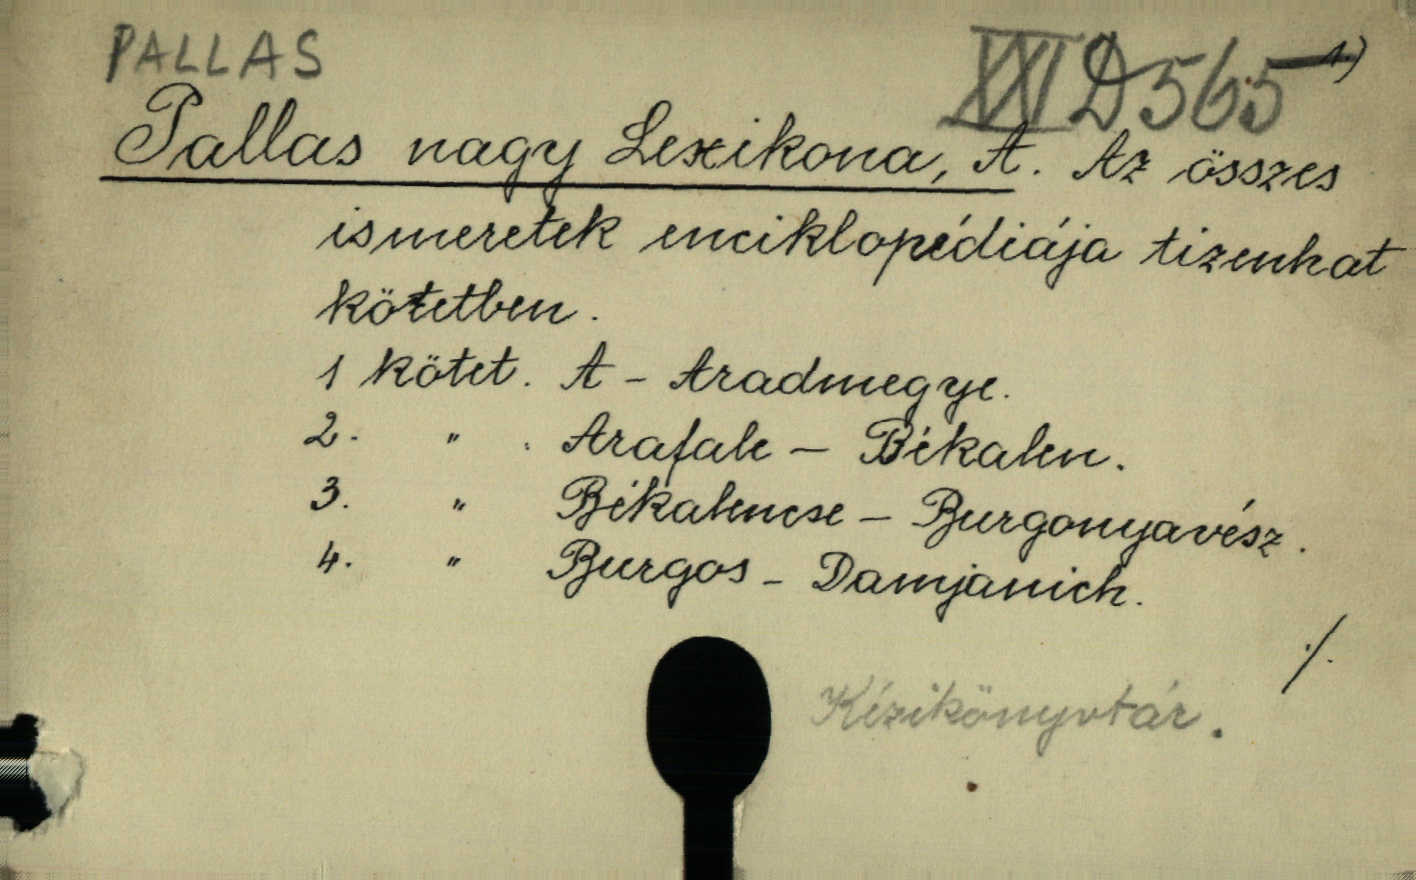 PALLAS
XXI D 565 1)
Pallas nagy Lexikona, A. Az összes
ismeretek enciklopédiája tizenhat
kötetben.
1 kötet. A - Aradmegye.
2. " . Arafale - Békalen.
3. " Békalencse - Burgonyavész.
4. " Burgos - Damjanich.
./.
Kézikönyvtár.